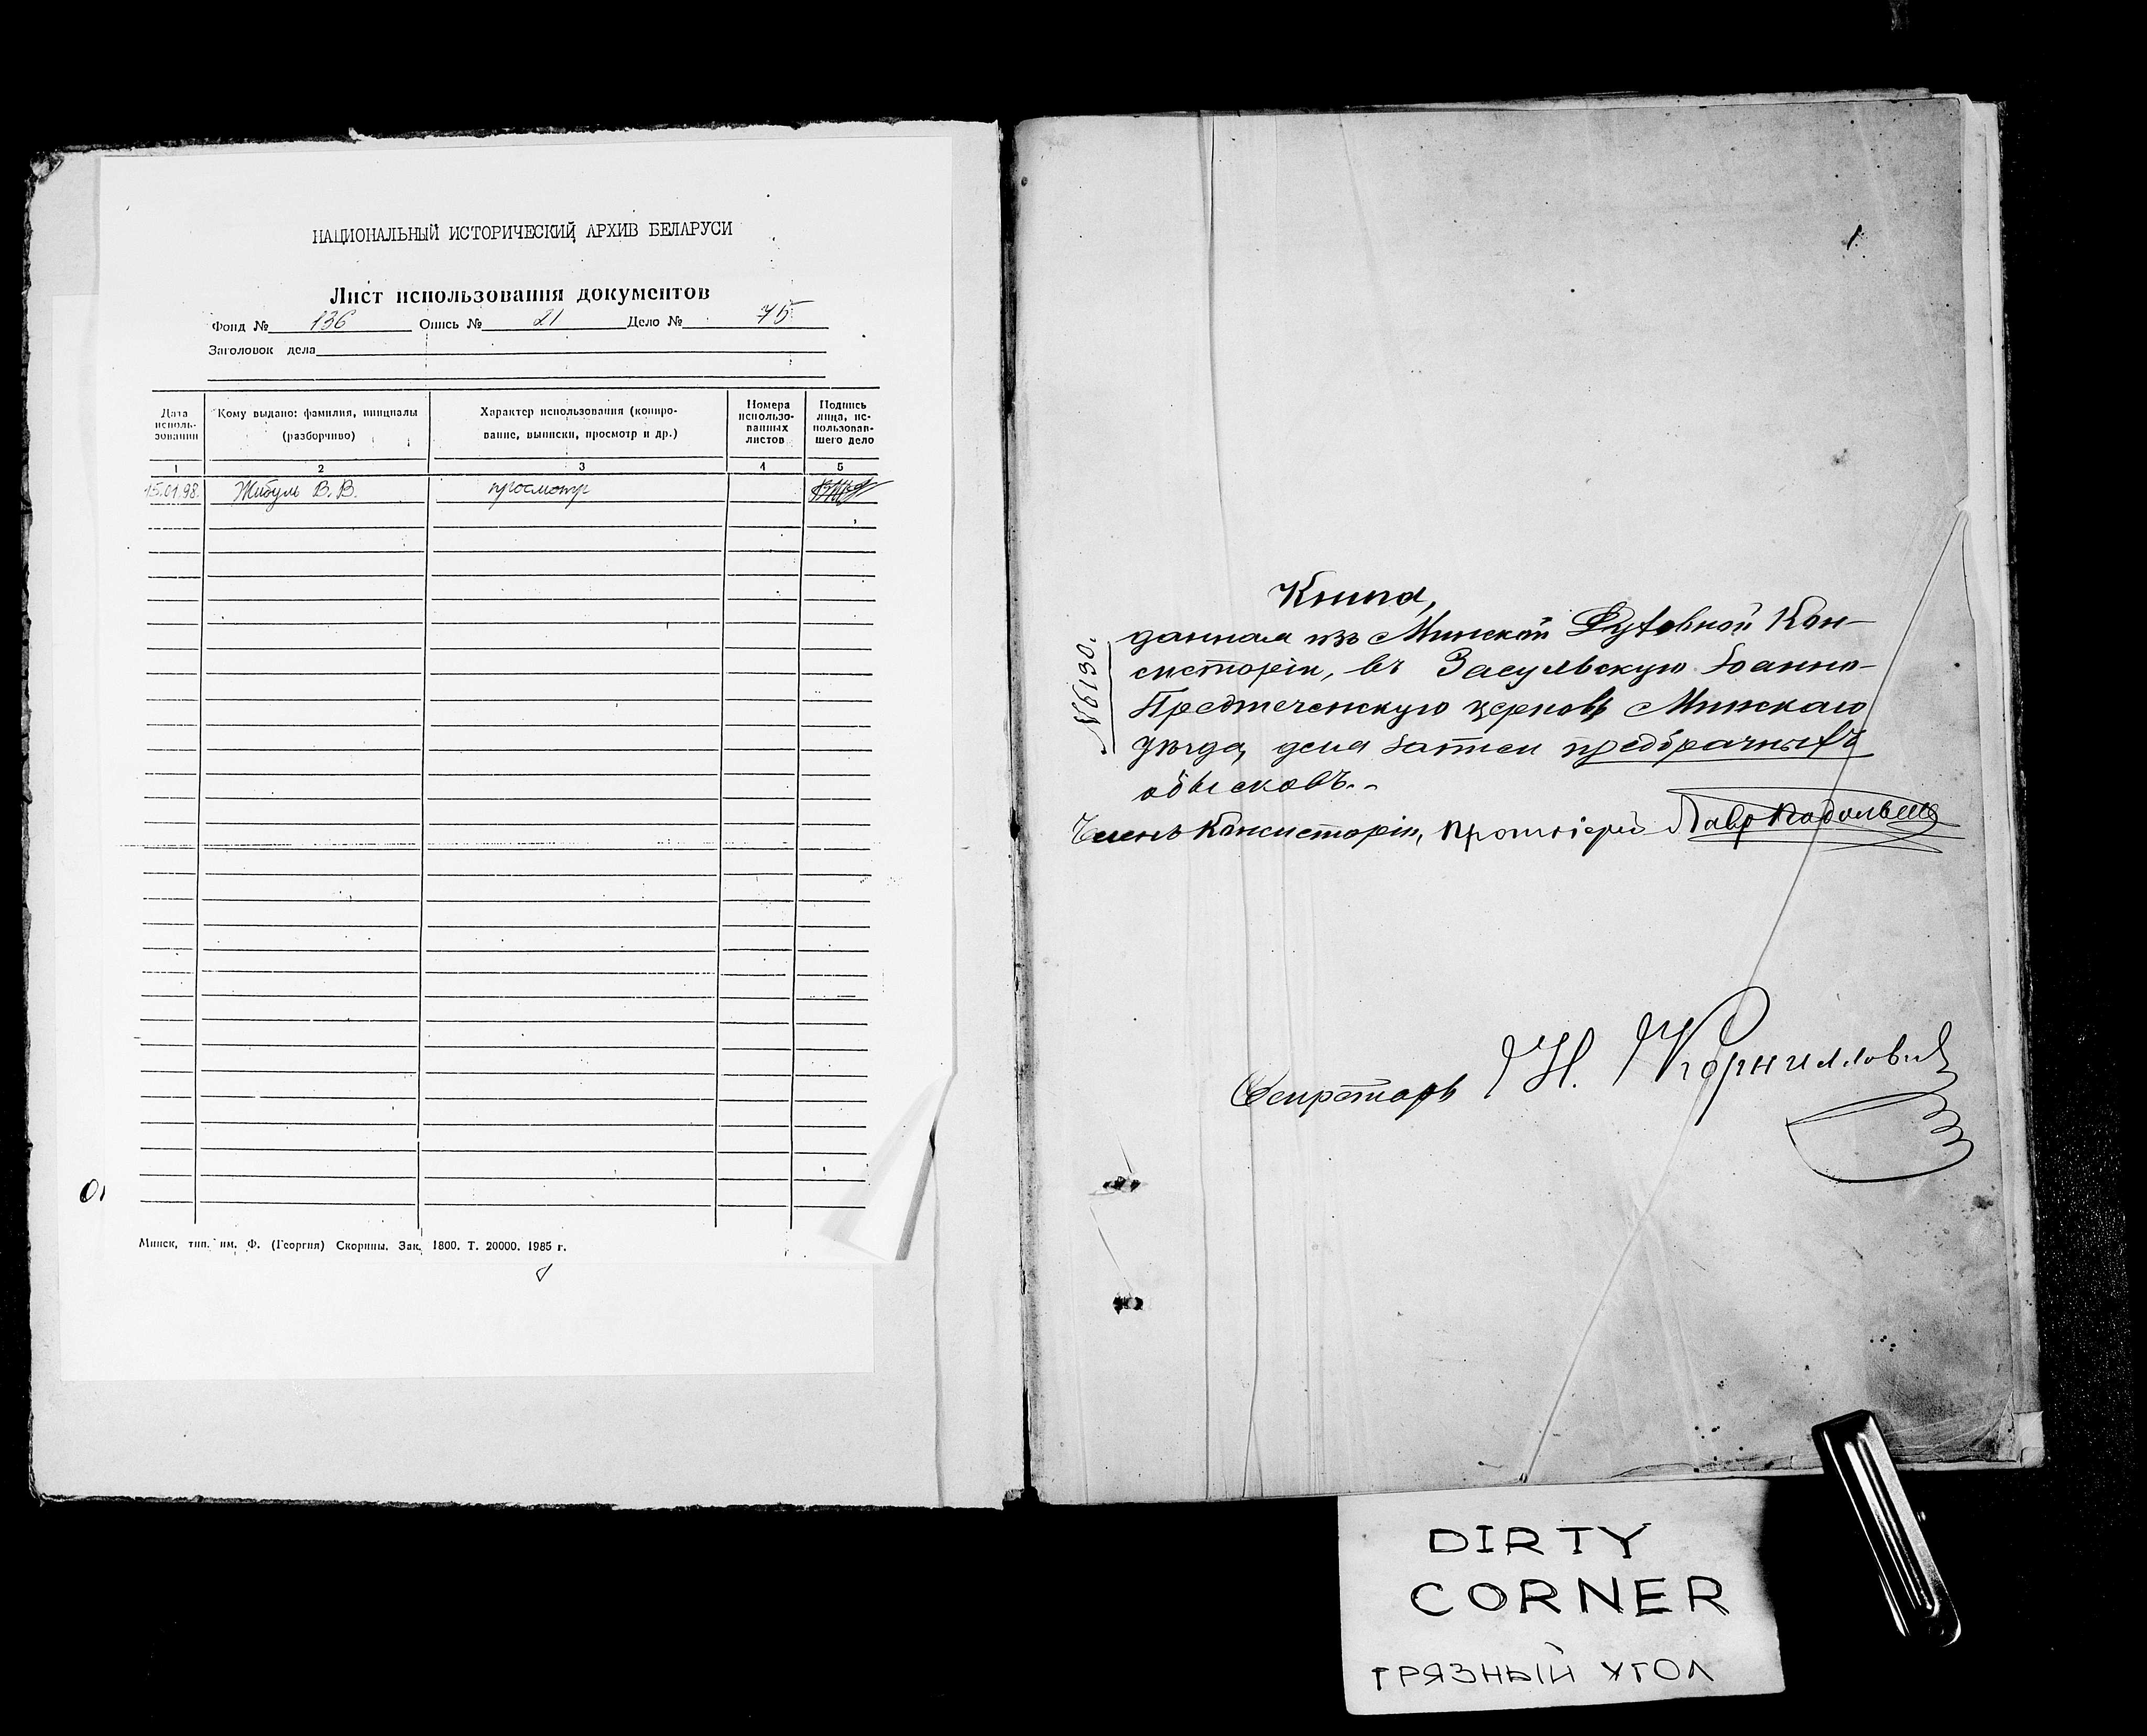 НАЦИОНАЛЬНЫЙ ИСТОРИЧЕСКИЙ АРХИВ БЕЛАРУСИ
Лист использования документов
Фонд № 136 Опись № 21 Дело № 75
Заголовок дела
Дата исполь-зования
Кому выдано: фамилия, инициалы (разборчиво)
Характер использования (копиро-вание, выписки, просмотр и др.)
Номера использо-ванных листов
Подпись лица, ис-пользовав-шего дело
1 2 3 4 5
15.01.98. Жибуль В. В. просмотр
Минск, тип. им. Ф. (Георгия) Скорины. Зак. 1800. Т. 20000. 1985 г.
1
№6130.
Книга,
данная изъ Минской Духовной Кон-
систоріи, въ Засульскую Іоанно-
Предтеченскую церковь Минскаго
уѣзда, для записи предбрачныхъ
обысковъ.
Членъ Консисторіи, Протоіерей
Секретарь Н. Корниллович
DIRTY
CORNER
ГРЯЗНЫЙ УГОЛ